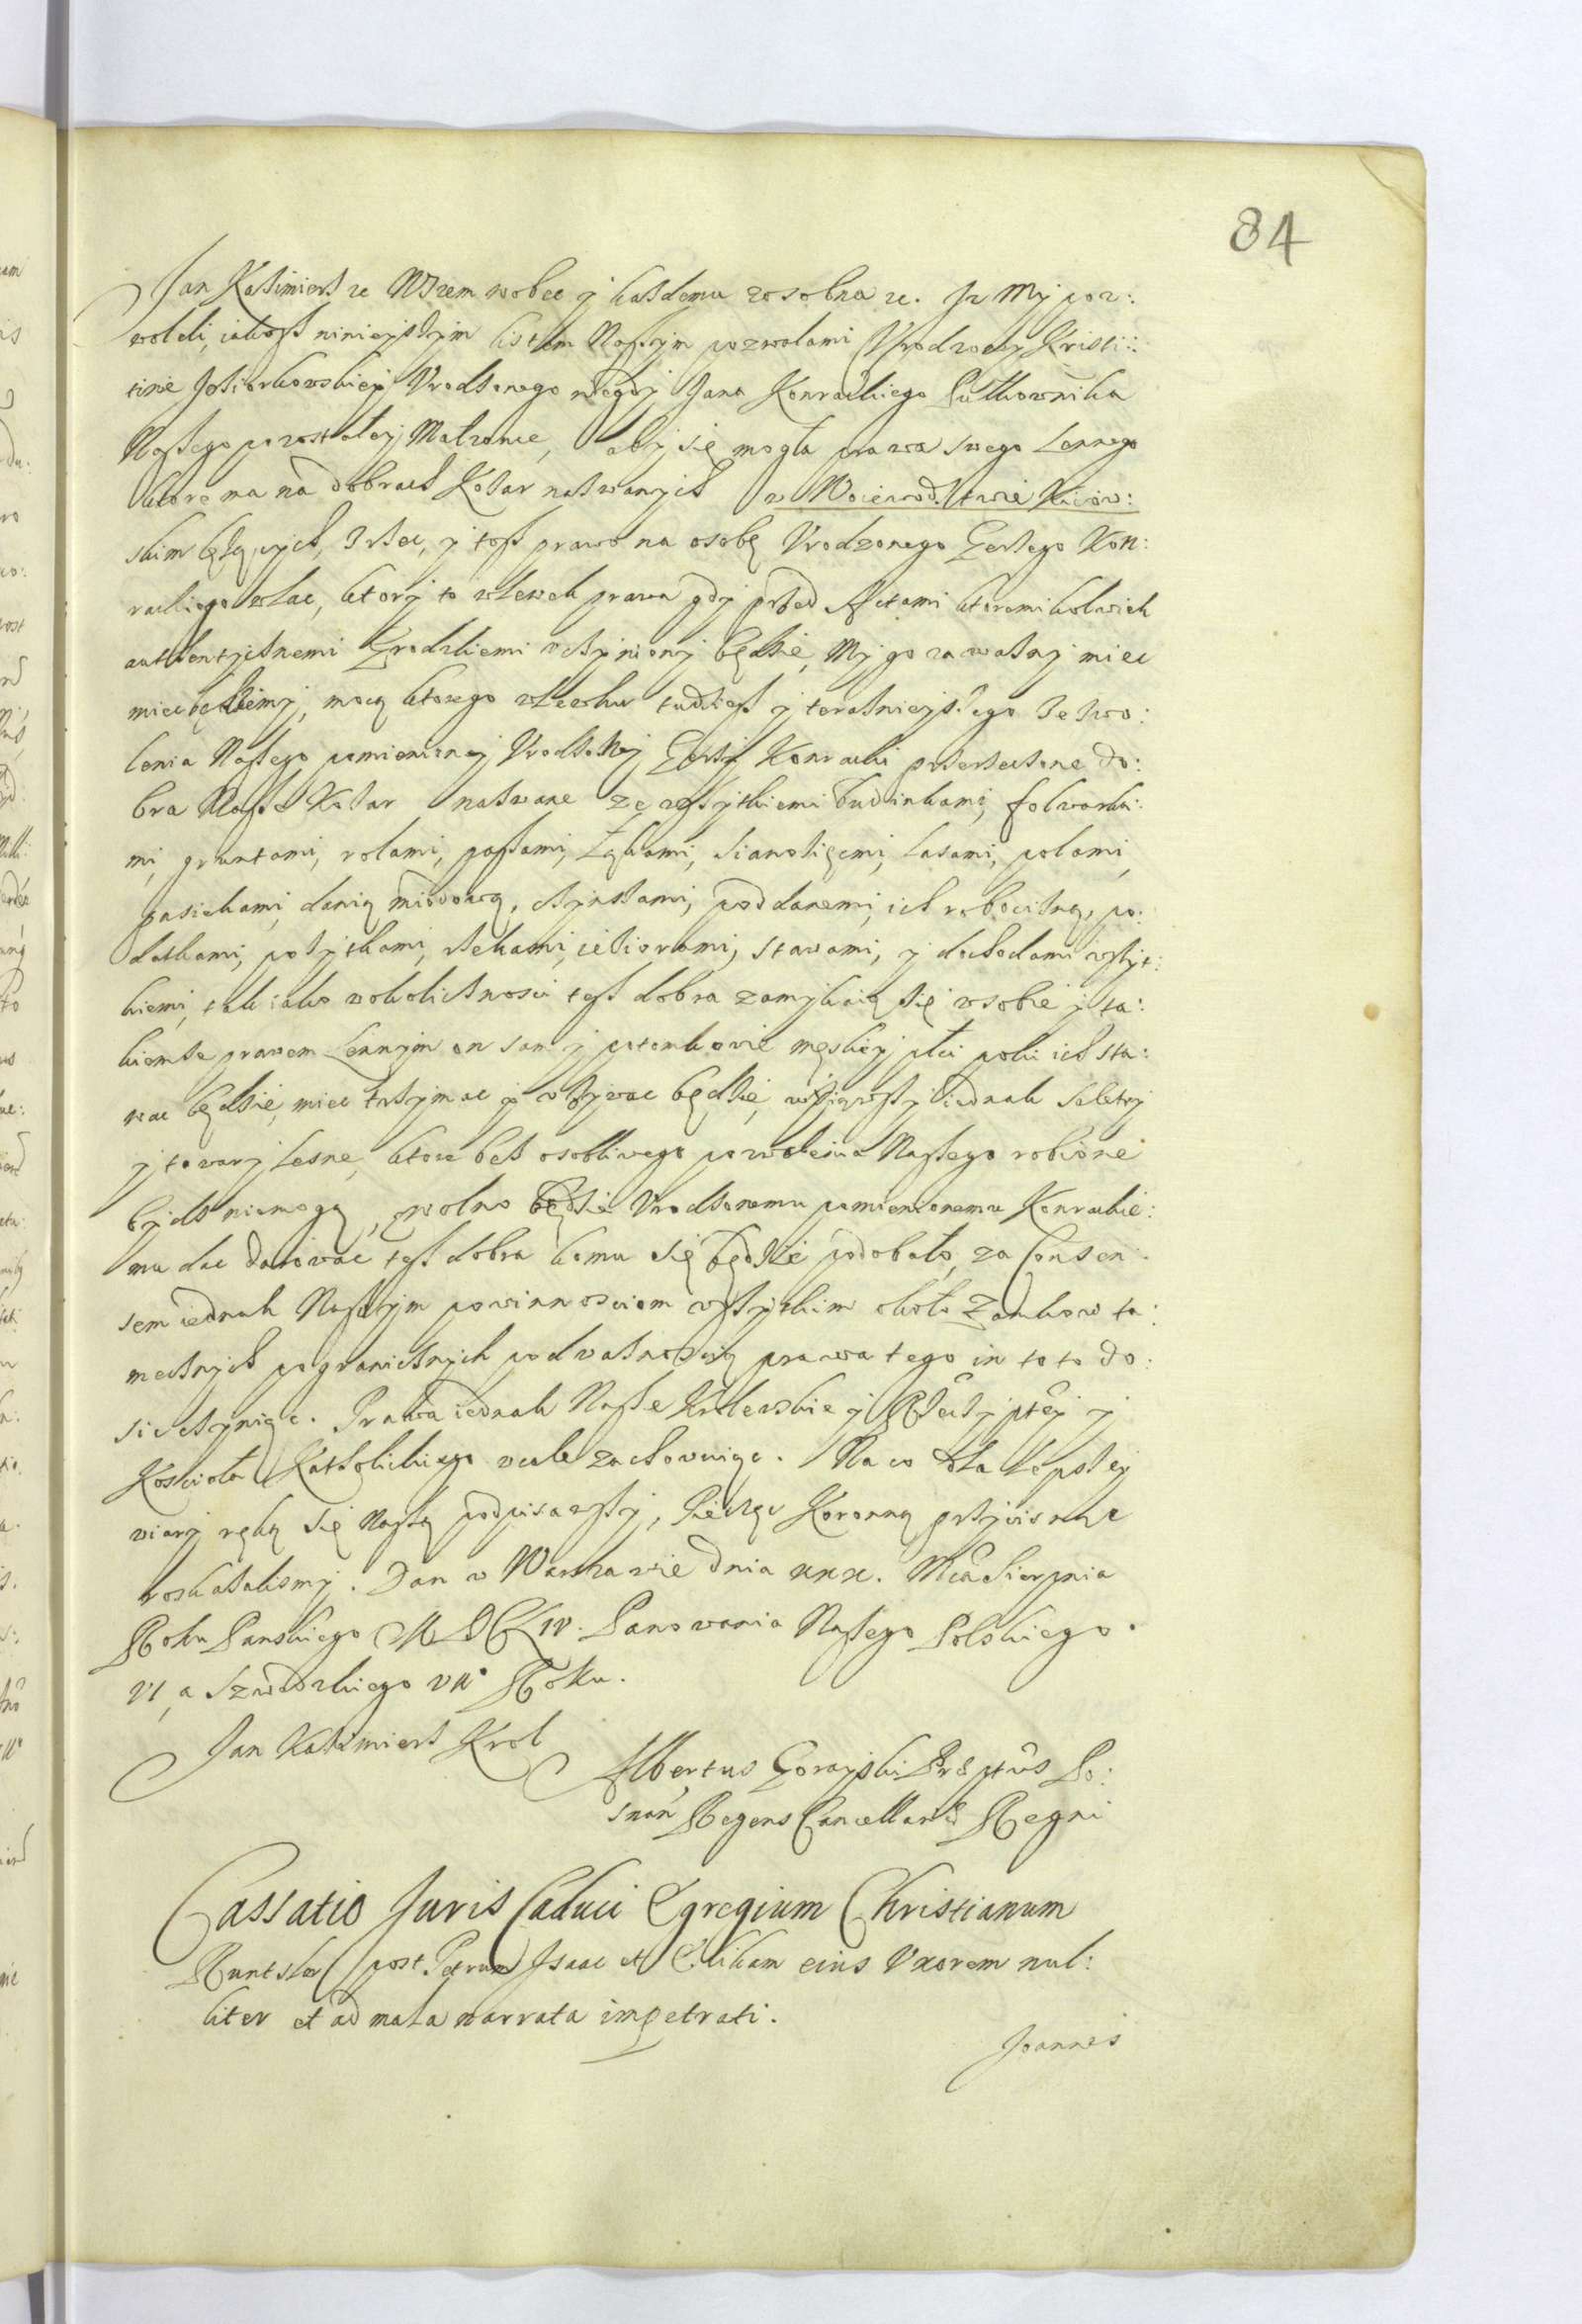 84
Jan Kazimierz zc Wszem wobec y kazdemu zosobna zc. Jz My poz:
wolili, iakosz ninieyszym listem Naszym pozwalami Vrodzoney Kristi:
tinie Jeziorkowskiey Vrodzonego niegdy Jana Konrackiego Pułkownika
Naszego pozostałey Małzonce, aby się mogła prawa swego Lennego
ktore ma na dobrach Kozar nazwanych w Woiewodztwie Kiiow:
skim lezących, zrzec, y tosz prawo na osobę Vrodzonego Jerzego Kon:
rackiego wlac, ktory to wlewek prawa gdy przed Actami ktoremikolwiek
authentycznemi Grodzkiemi vczyniony będzie, My go za wazny miec
miec będziemy, mocą ktorego wlewku tudziesz y terazniejszego zezwo:
lenia Naszego pomieniony Vrodzony Jerzy Konracki przerzeczone do:
bra Nasze Kozar nazwane ze wszytkiemi budinkami, folwarka:
mi, gruntami, rolami, paszami, Łąkami, sianozięcmi, lasami, polami,
pasiekami, danią miodową, czynszami, poddanemi, ich robocizną, po:
datkami, pozytkami, rzekami, ieziorami, stawami, y dochodami wszyt:
kiemi, tak iako wokolicznosci tesz dobra zamykaią się wsobie y ta:
kiemze prawem Lennym on sam y potomkowie męskiey płci poki ich sta:
wac będzie, miec trzymac y vzywac będzie, wyiąwszy iednak Saletry
y towary Lesne, ktore bez osobliwego pozwolenia Naszego robione
bydz niemogą, wolno będzie Vrodzonemu pomienionemu Konrackie:
mu dac darowac tesz dobra komu się będzie podobało, za Consen:
sem iednak Naszym powinnosciom wszytkim około Zamkow ta:
mecznych pogranicznych pod waznoscią prawa tego in toto do:
sic czyniąc. Prawa iednak Nasze Krolewskie y Rzeczyptey y
Koscioła Katholickiego vcale zachowuiąc. Na co dla Lepszey
wiary ręką się Naszą podpisawszy, Pieczęc Koronną przycisnąc
roskazalismy. Dan w Warszawie dnia xxx. Mca Sierpnia
Roku Panskiego MDCLIV. Panowania Naszego Polskiego
VI, a Szwedzkiego VII Roku.
Jan Kazimierz Krol
Albertus Gorayski Prptus Po:
snan Regens Cancellariae Regni
Cassatio Juris Caduci Egregium Christianum
Runtsler post Petrum Isaac et Eliham eius Vxorem nul:
liter et ad mala narrata impetrati.
Joannes